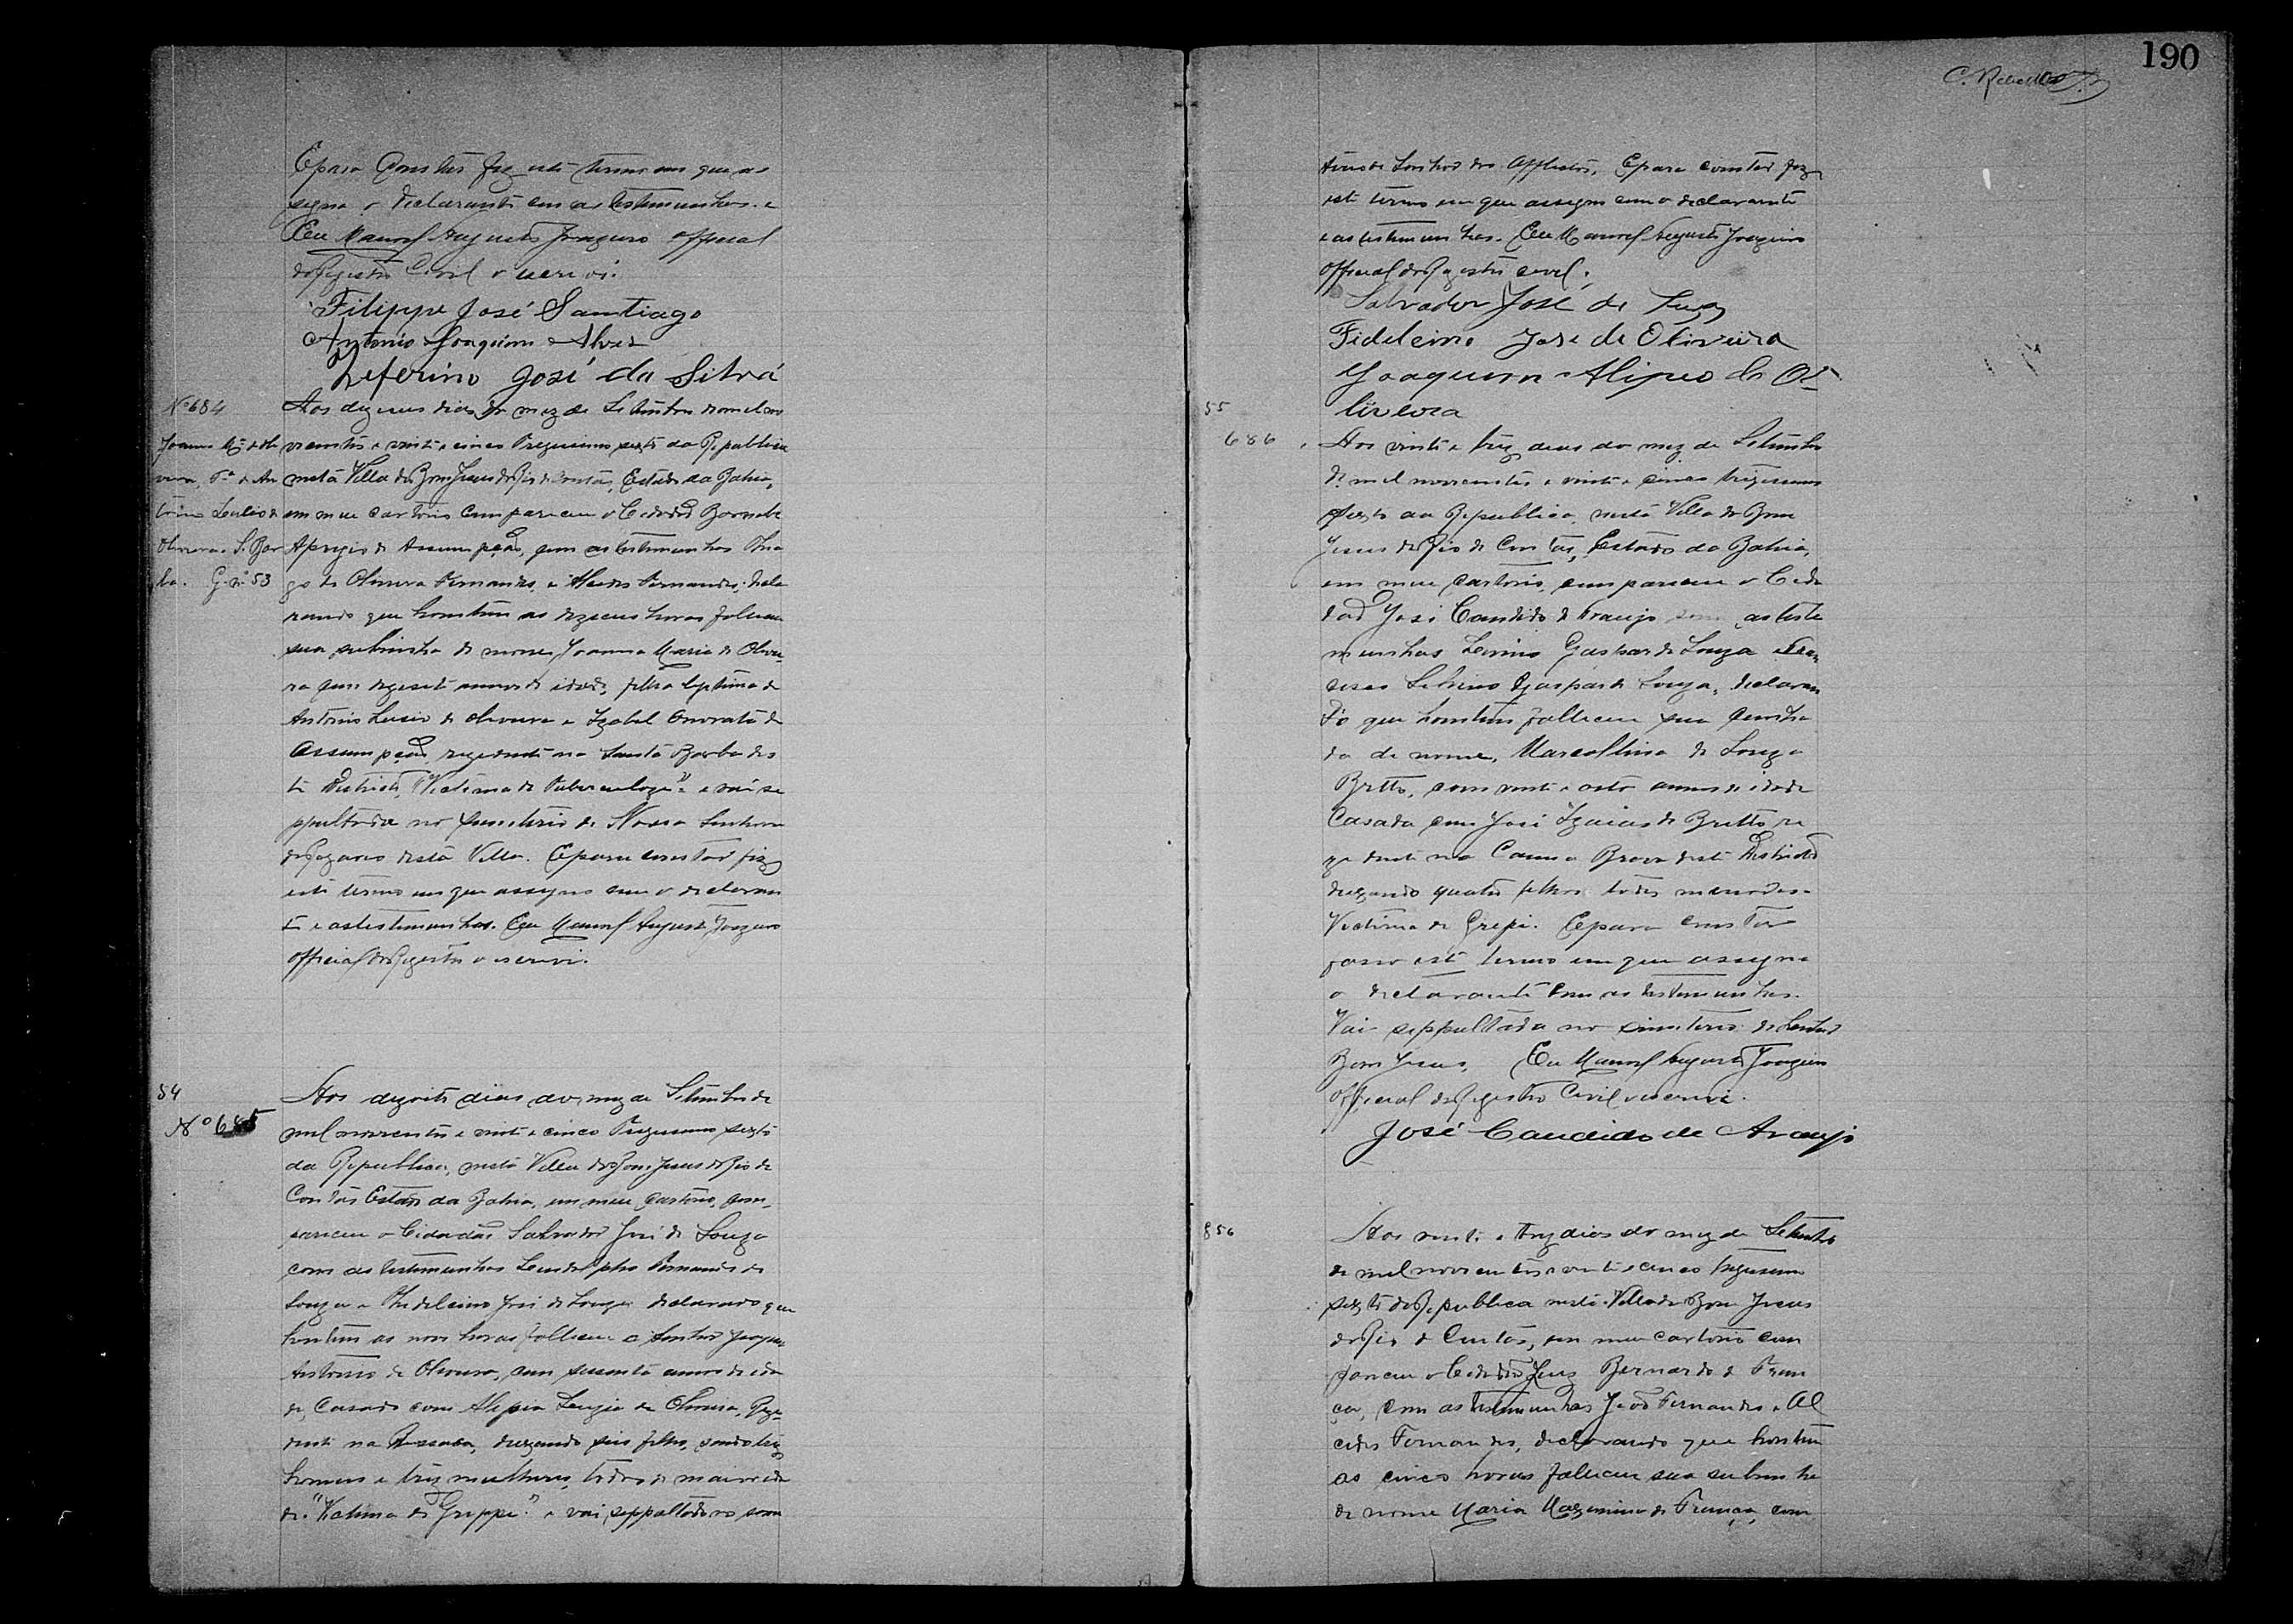 E para constar fiz este termo em que as
signa o declarante com as testemunhas. e
Eu Manoel Augusto Joazeiro official
do Registro Civil o escrevi.
Filippe José Santiago
Antonio Joaquim Alves
Zeferino José da Silva
Nº 684
Joanna Mª de Oli
veira, Fª de An
tonio Lucio de
Oliveira. S. Bar
ba. G. nº 53
Aos dezeseis dias do mez de Setembro de mil no
vecentos e vinte e cinco Tregesimo sexto da Republica
nesta Villa do Bom Jesus do Rio de Contas, Estado da Bahia,
em meu cartorio compareceu o Cidadão Barnabé
Aprigio de Assumpção, com as testemunhas Thia
go de Oliveira Fernandes, e Fernandes, decla
rando que hontem as dezeseis horas falleceu
sua sobrinha de nome, Joanna Maria de Olivei
ra com dezesete annos de idade, filha legitima de
Antonio Lucio de Oliveira e Izabel Onorata de
Assumpção, rezidente na Santa Barba des
te Districto, "Victima de Tuberculoze" e vai se
ppultada no semiterio de Nossa Senhora
do Rozario desta Villa. E para constar fiz
este termo em que assigno com o declaran
te e as testemunhas. Eu Manoel Augusto Joazeiro
official do Registro o escrevi.
54
Nº 685
Aos dezoito dias do mez de Setembro de
mil novecentos e vinte e cinco Tregesimo sexto
da Republica, nesta Villa do Bom Jesus do Rio de
Contas Estado da Bahia, em meu cartorio, com
pareceu o Cidadão Salvador José de Souza
com as testemunhas Fernandes de
Souza e Fidelcino José de Souza declarando que
hontem as nove horas falleceu o Senhor Joaquim
Antonio de Oliveira, com sessenta annos de ida
de, Casado com Alipia Luzia de Oliveira, Reze
dente na deixando seis filhos, sendo trez
homens e trez mulheres, todos de maior ida
de. "Victima de Grippe." e vai seppultado no semi
190
C. Rebello
terio do Senhor dos Afflictos. E para constar fiz
este termo em que assigno com o declarante
e as testemunhas. Eu Manoel Augusto Joazeiro
official do Registro civel.
Salvador José de Souza
Fidelcino José de Oliveira
Joaquim Alipio de Ol
iveira
55
686
Aos vinte e trez dias do mez de Setembro
de mil novecentos e vinte e cinco trigesimo
sexto da Republica, nesta Villa do Bom
Jesus do Rio de Contas, Estado da Bahia,
em meu cartorio, compareceu o Cida
dão José Candido de Araujo com as teste
munhas Gaspar de Souza e Fran
cisco Gaspar de Souza, declaran
do que hontem falleceu sua cunha
da de nome, Marcollina de Souza
Britto, com vinte e oito annos de idade
Casada com José Izaias de Britto re
zidente na Canna Brava deste Districto
deixando quatro filhos todos menores.
Victima de Gripe. E para constar
passo este termo em que assigna
o declarante com as testemunhas.
Vai seppultada no simiterio do Senhor
Bom Jesus. Eu Manoel Augusto Joazeiro
Official do Registro Civil o escrevi.
José Candido de Araujo
856
Aos vinte e trez dias do mez de Setembro
de mil novecentos e vinte e cinco trigesimo
sexto da Republica nesta Villa do Bom Jesus
do Rio de Contas, em meu cartorio com
pareceu o Cidadão Luis Bernardo de Fran
ça, com as testemunhas João Fernandes e Al
cides Fernandes, declarando que hontem
as cinco horas falleceu sua sobrinha
de nome Maria Maximina de França, com